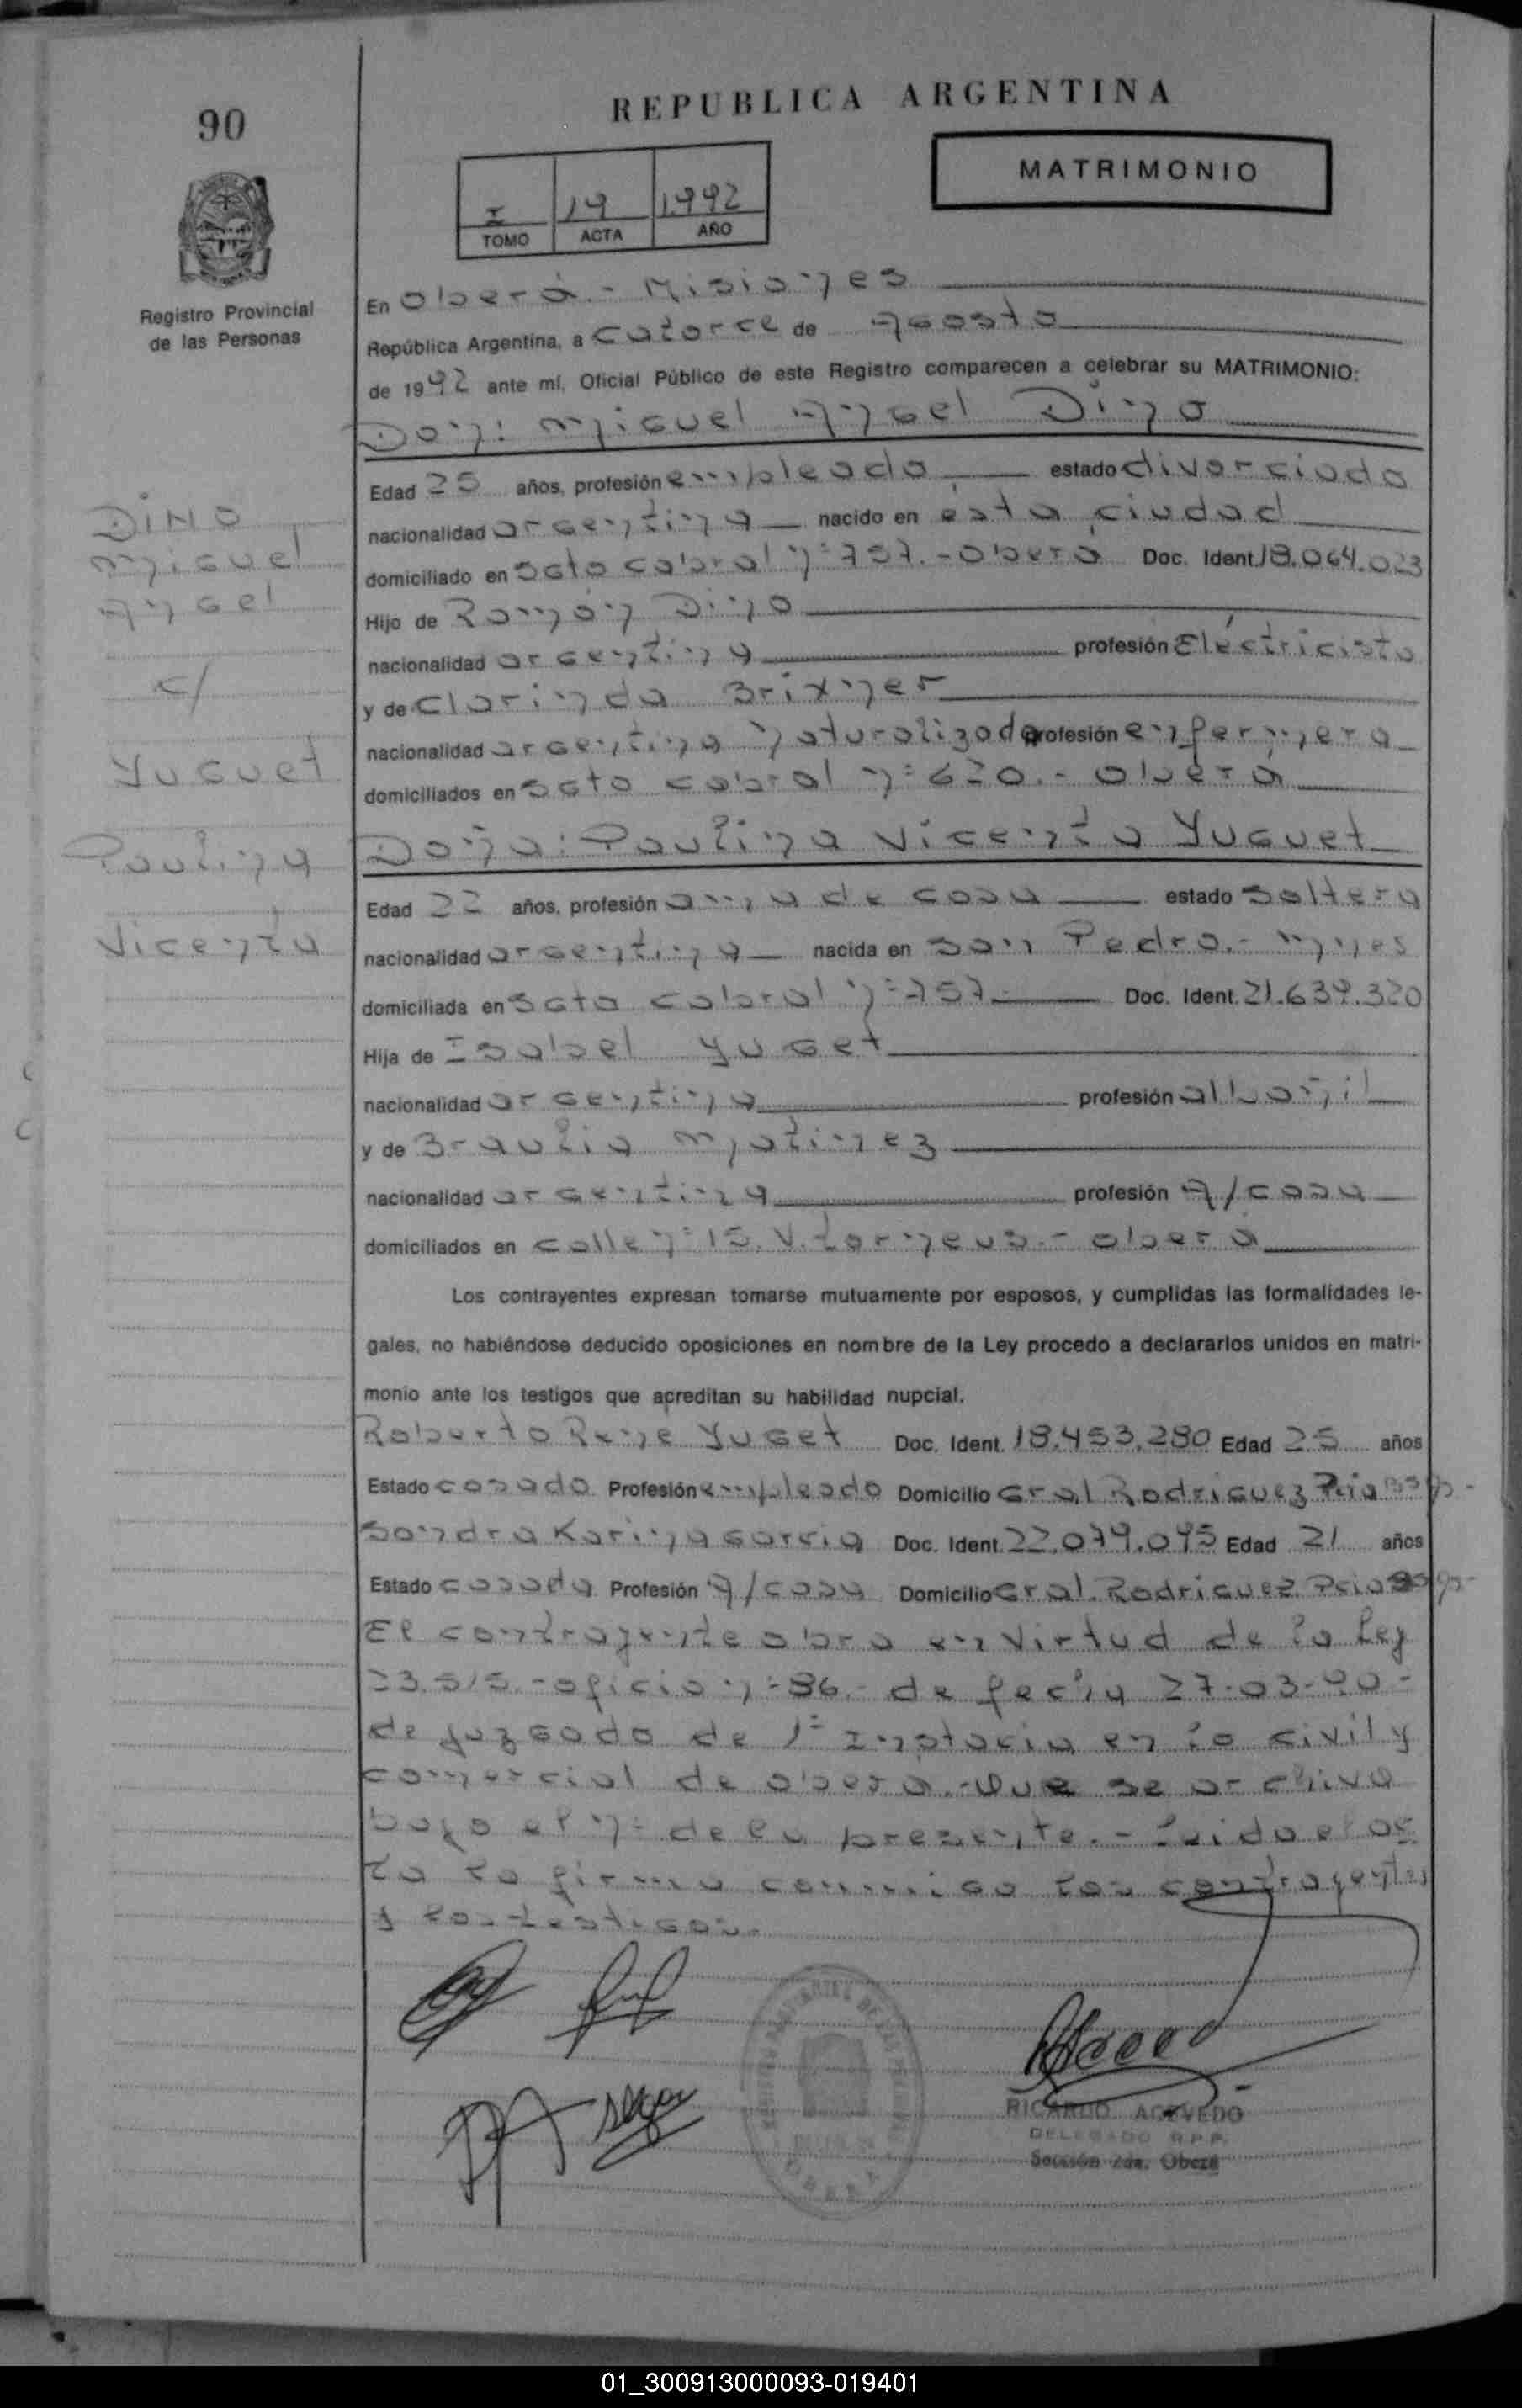 90
REPUBLICA ARGENTINA
MATRIMONIO
I 19 1992
TOMO ACTA AÑO
Registro Provincial
de las Personas
En Oberá.- Misiones
República Argentina, a catorce de Agosto
de 1992 ante mí, Oficial Público de este Registro comparecen a celebrar su MATRIMONIO:
Don: Miguel Angel Dino
Edad 25 años, profesión empleado estado divorciado
nacionalidad argentina nacido en ésta ciudad
domiciliado en Sgto cabral nº 757.- Oberá Doc. Ident. 18.064.023
Hijo de Ramón Dino
nacionalidad argentina profesión Eléctricista
y de Clorinda Brixner
nacionalidad argentina naturalizada profesión enfermera
domiciliados en Sgto cabral nº 620.- Oberá
Doña: Paulina Vicenta Yuguet
Edad 22 años, profesión ama de casa estado soltera
nacionalidad argentina nacida en San Pedro.- Mnes
domiciliada en Sgto cabral nº 757.- Doc. Ident. 21.639.320
Hija de Isabel Yuget
nacionalidad argentina profesión albañil
y de Braulia Matinez
nacionalidad argentina profesión A/casa
domiciliados en calle nº 15. V. torneus.- Oberá
DINO
Miguel
Angel
c/
Yuguet
Paulina
Vicenta
Los contrayentes expresan tomarse mutuamente por esposos, y cumplidas las formalidades le-
gales, no habiéndose deducido oposiciones en nombre de la Ley procedo a declararlos unidos en matri-
monio ante los testigos que acreditan su habilidad nupcial.
Roberto Rene Yuget Doc. Ident. 18.453.280 Edad 25 años
Estado casado Profesión empleado Domicilio Gral Rodriguez Pcia
Sandra Karina Garcia Doc. Ident. 22.079.095 Edad 21 años
Estado casada Profesión A/casa Domicilio Gral. Rodriguez Pcia
El contrayente obra en virtud de la Ley
23.515.- oficio nº 86.- de fecha 27-03-90-
de juzgado de 1º Instacia en lo civil y
comercial de oberá.- Que se archiva
bajo el nº de la presente.- Leida el ac
ta la firma conmigo los contrayentes
y los testigos.-
RICARDO ACEVEDO
DELEGADO R.P.P.
Sección 2da. Oberá
01_300913000093-019401